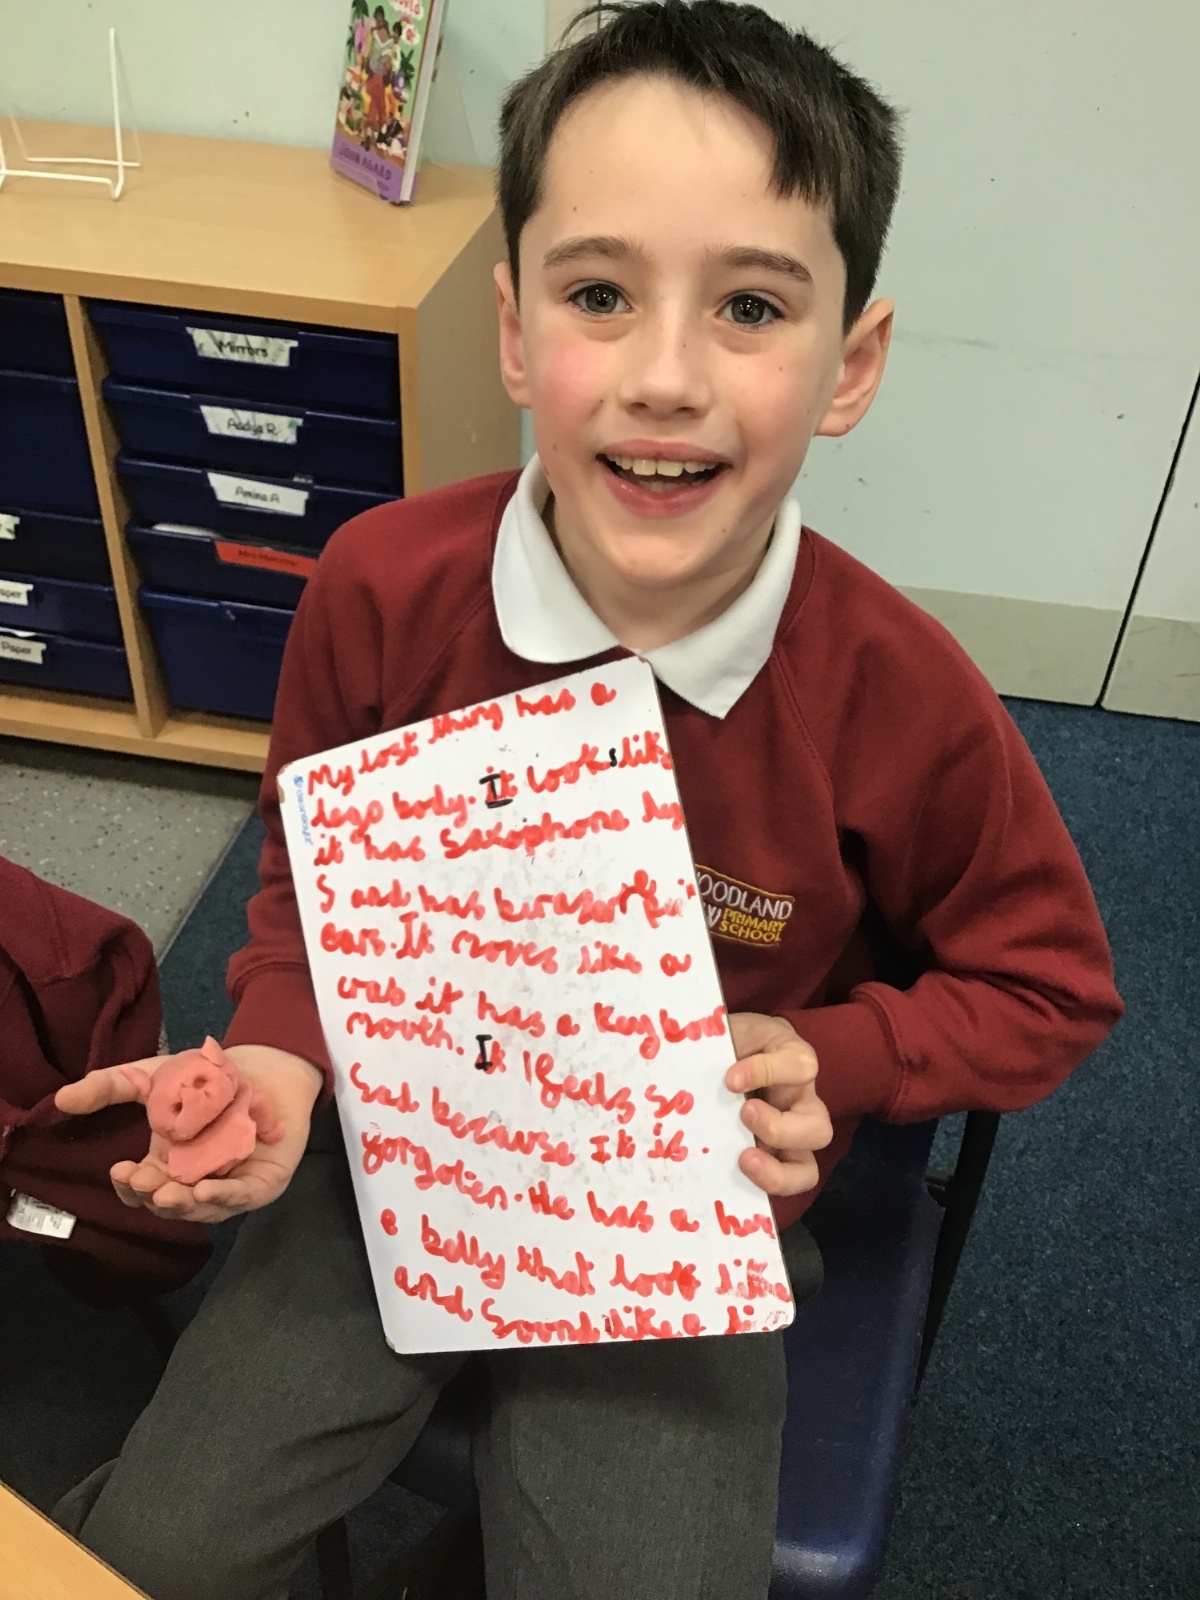 JOHN AGARD
Mirrors
Addya R
Amina A
Mrs
Paper
My lost thing has a
lego body. It looks like
it has Saxophone leg
S and has
ears. It moves like a
crab it has a Keyboar
mouth. It feels so
Sad because It is.
forgoten. He has a
a belly that look like
and Sound like a
WOODLAND
PRIMARY
SCHOOL